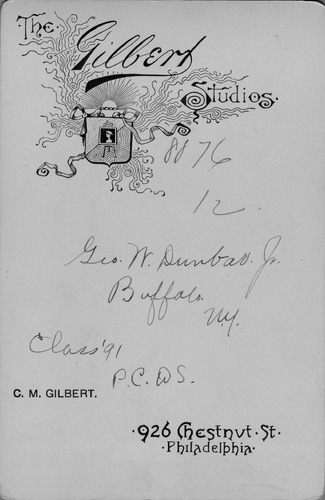 The
Gilbert
Studios.
8876
12
Geo. W. Dunbar. Jr.
Buffalo.
N.Y.
Class '91
P.C.D.S.
C. M. GILBERT.
·926 Chestnut·St·
·Philadelphia·